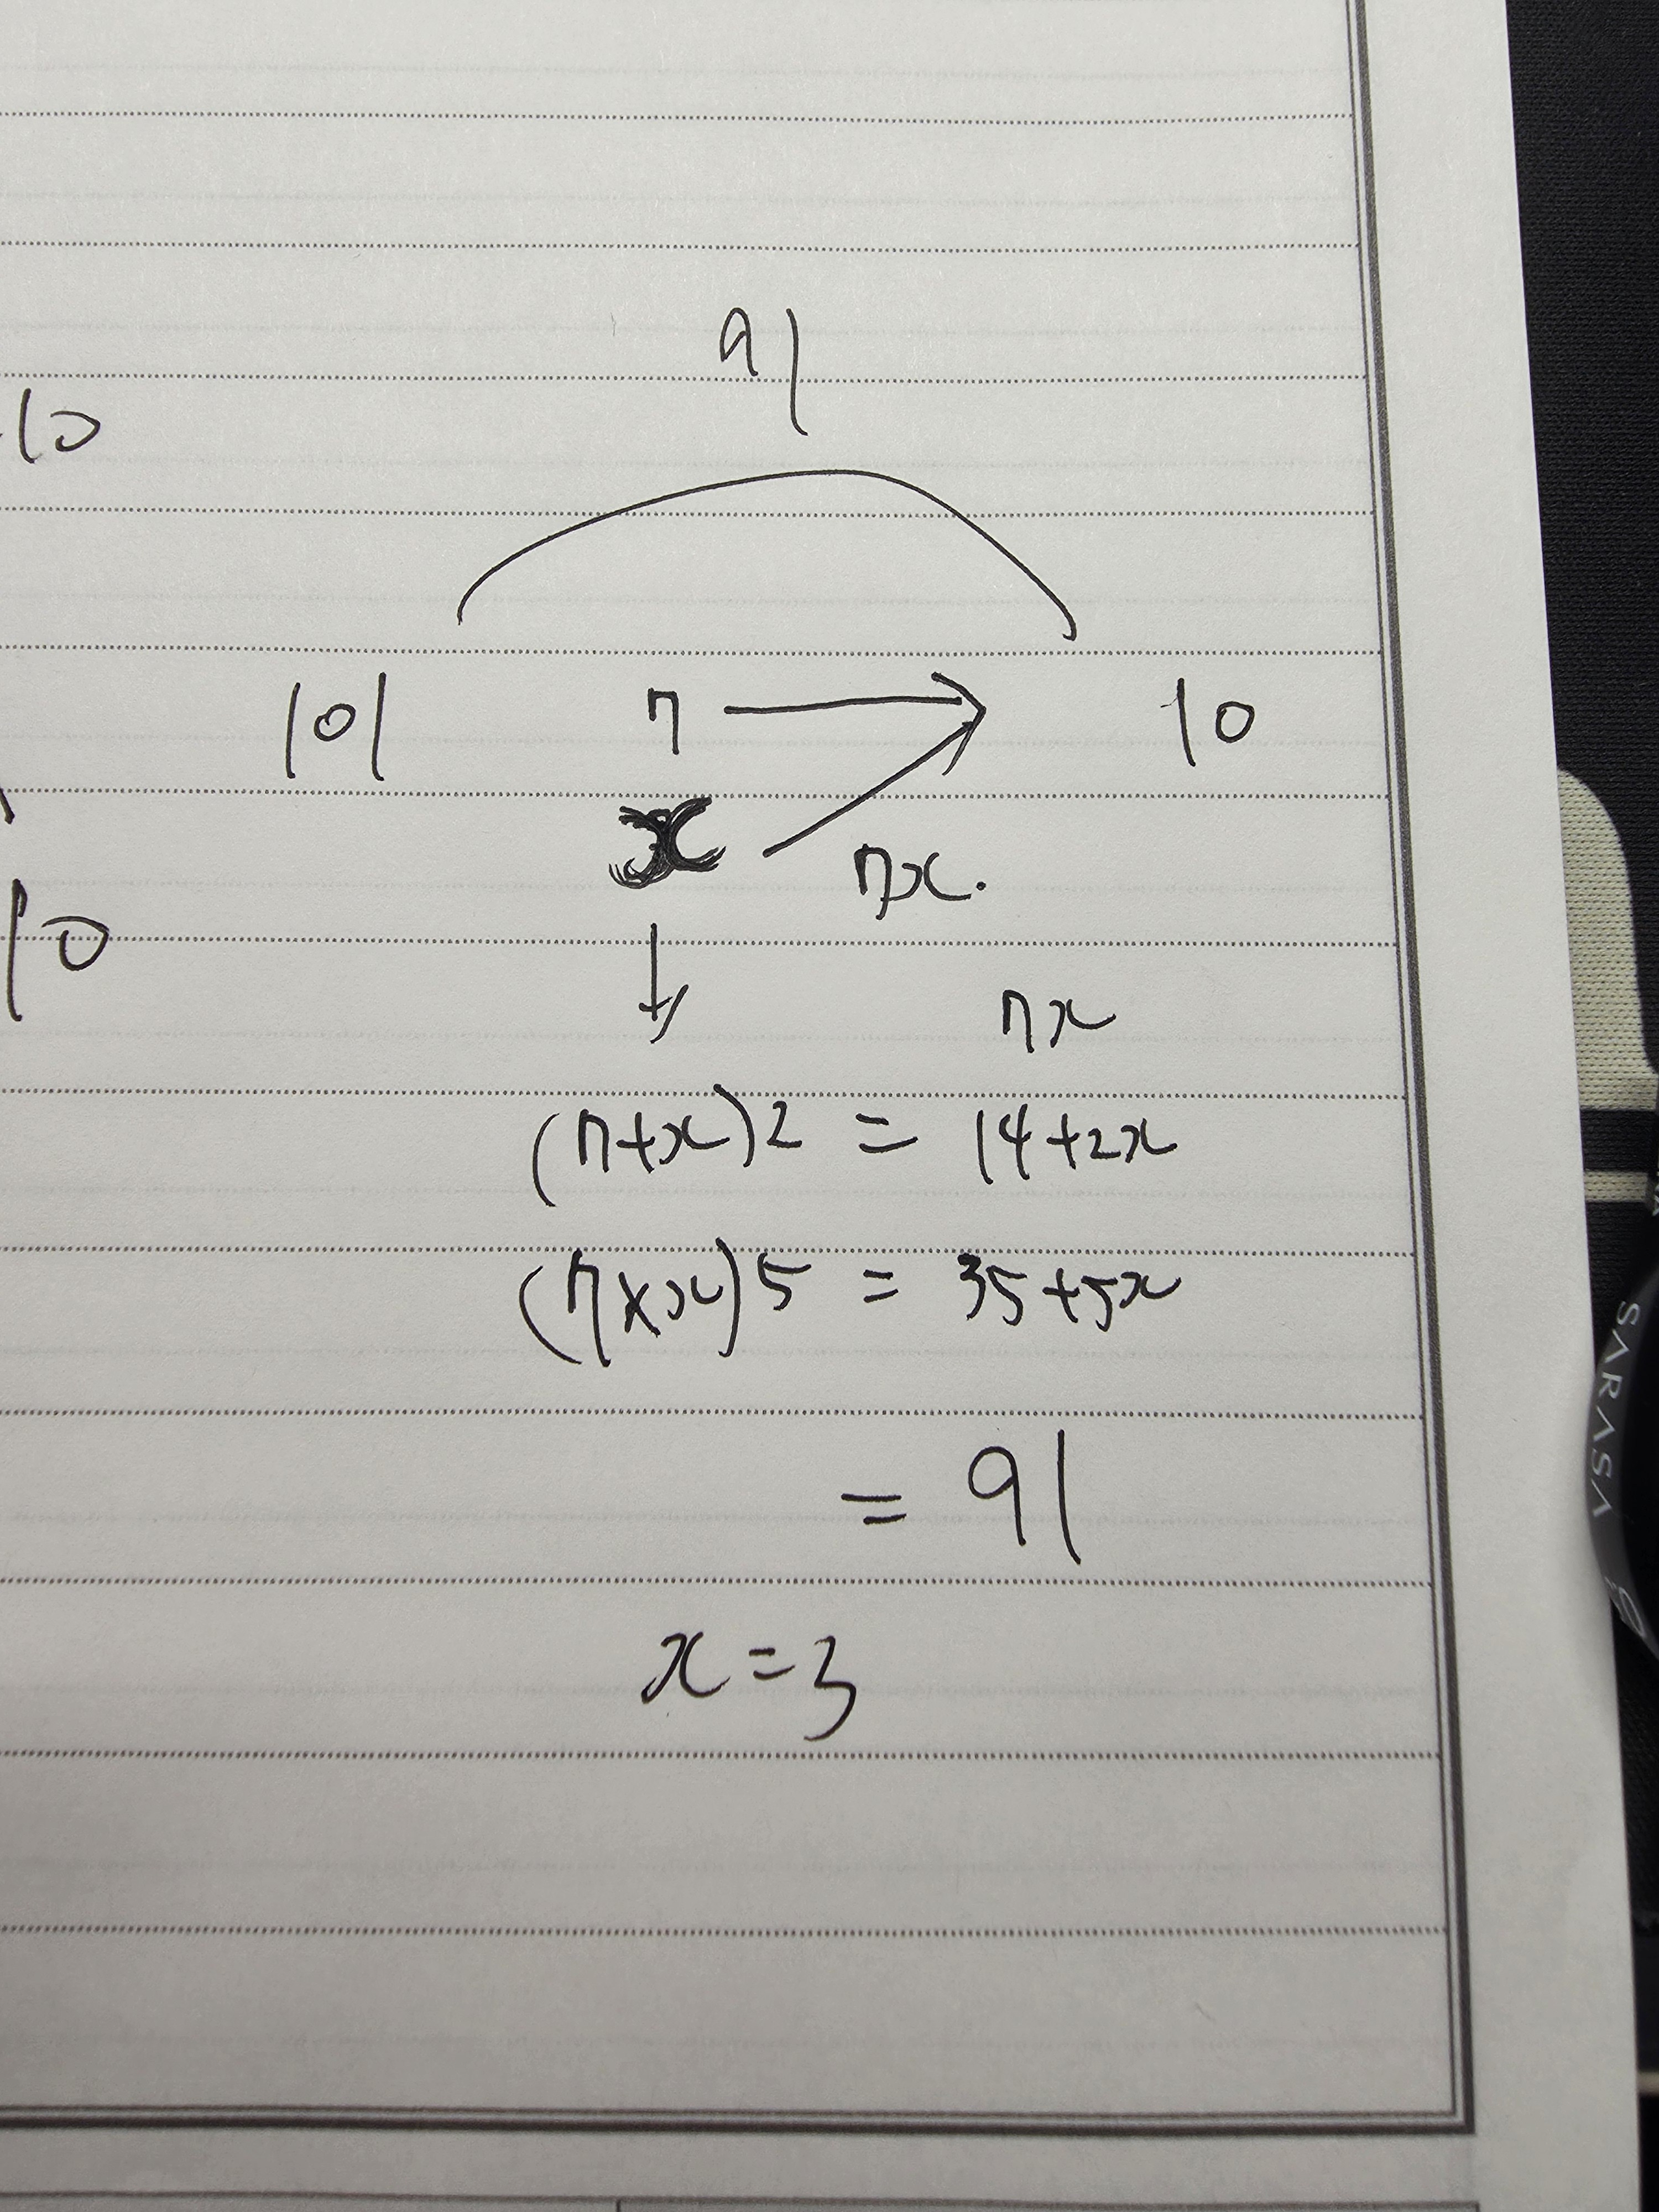 91
10
101 7 → 10
x 7x.
10
↓
7x
(7+x)2 = 14+2x
(7+x)5 = 35+5x
= 91
x=3
SARASA